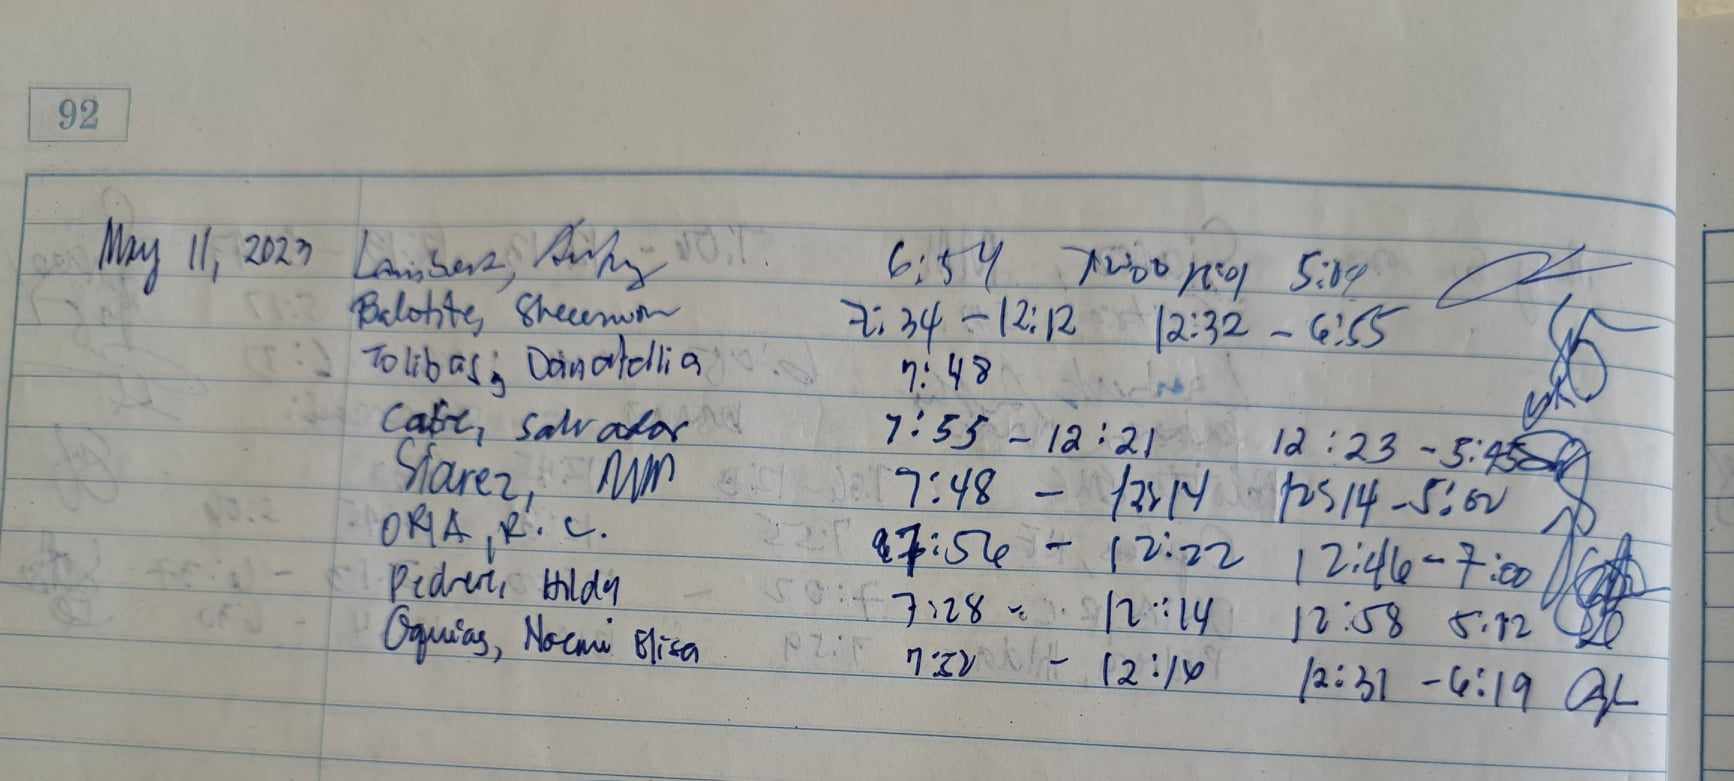 92
May 11, 2023 Lambert, 6:54 12:00 12:01 5:04
Balotite, 7:34 - 12:12 12:32 - 6:55
Tolibas, Donatellia 7:48
Cate, Salvador 7:55 - 12:21 12:23 - 5:45
Starez, NM 7:48 - 12:14 12:14 - 5:00
ORIA, R.C. 7:56 - 12:22 12:46 - 7:00
Hilda 7:28 - 12:14 12:58 5:12
Oquias, Noemi Elisa 7:52 - 12:16 12:31 - 6:19